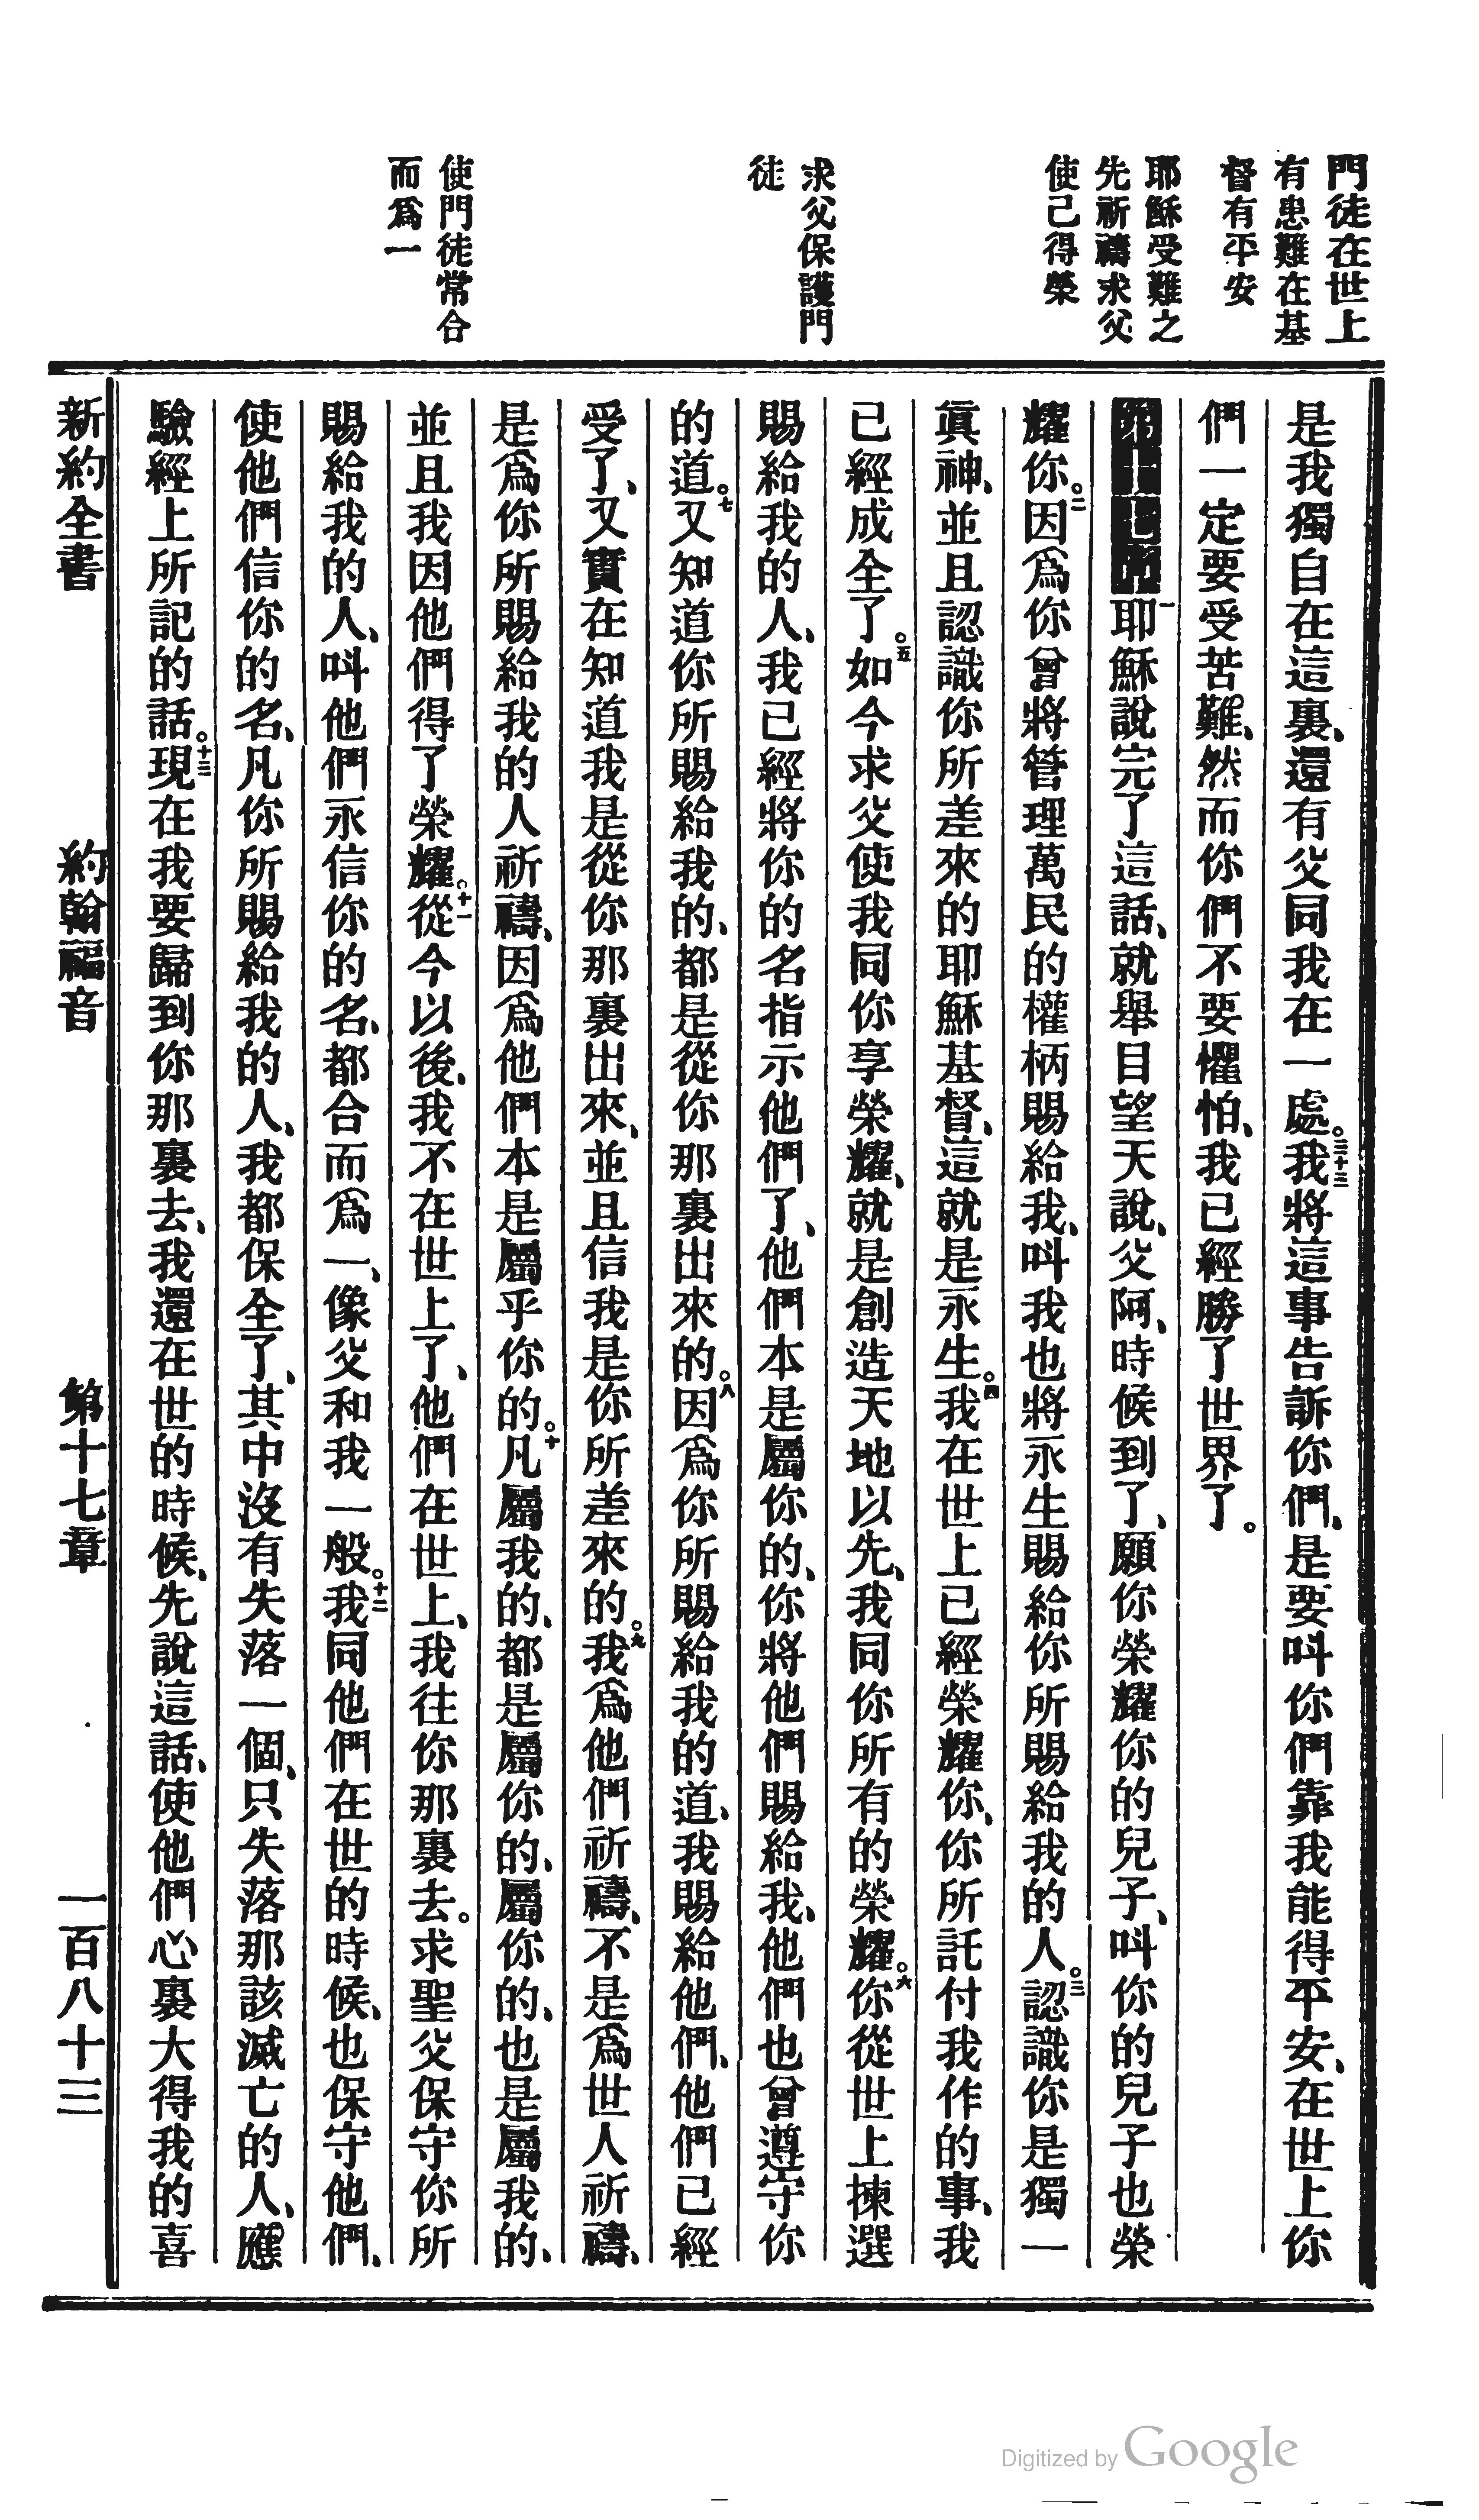 門徒在世上
有患難在基
督有平安
耶穌受難之
先祈禱求父
使己得榮
求父保護門
徒
使門徒常合
而爲一
是我獨自在這裏、還有父同我在一處。三十三我將這事告訴你們、是要叫你們靠我能得平安、在世上你
們一定要受苦難、然而你們不要懼怕、我已經勝了世界了。
一耶穌說完了這話、就舉目望天說、父阿、時候到了、願你榮耀你的兒子、叫你的兒子也榮
耀你。二因爲你曾將管理萬民的權柄賜給我、叫我也將永生賜給你所賜給我的人。三認識你是獨一
眞神、並且認識你所差來的耶穌基督、這就是永生。四我在世上已經榮耀你、你所託付我作的事、我
已經成全了。五如今求父使我同你享榮耀、就是創造天地以先、我同你所有的榮耀。六你從世上揀選
賜給我的人、我已經將你的名指示他們了、他們本是屬你的、你將他們賜給我、他們也曾遵守你
的道。七又知道你所賜給我的、都是從你那裏出來的。八因爲你所賜給我的道、我賜給他們、他們已經
受了、又實在知道我是從你那裏出來、並且信我是你所差來的。九我爲他們祈禱、不是爲世人祈禱、
是爲你所賜給我的人祈禱、因爲他們本是屬乎你的。十凡屬我的、都是屬你的、屬你的、也是屬我的、
並且我因他們得了榮耀。十一從今以後、我不在世上了、他們在世上、我往你那裏去。求聖父保守你所
賜給我的人、叫他們永信你的名、都合而爲一、像父和我一般。十二我同他們在世的時候、也保守他們、
使他們信你的名、凡你所賜給我的人、我都保全了、其中沒有失落一個、只失落那該滅亡的人、應
驗經上所記的話。十三現在我要歸到你那裏去、我還在世的時候、先說這話、使他們心裏大得我的喜
新約全書 約翰福音 第十七章 一百八十三
Digitized by Google